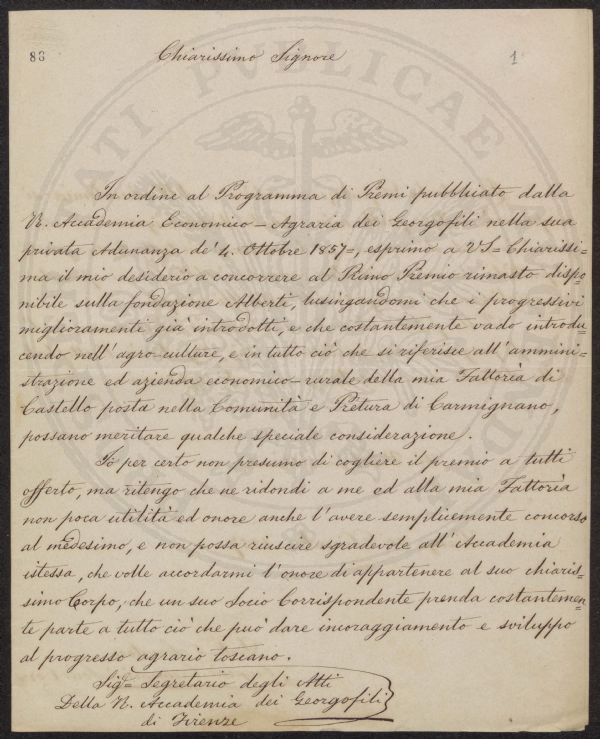 88
1
Chiarissimo Signore
In ordine al Programma di Premi pubbliato dalla
R. Accademia Economico - Agraria dei Georgofili nella sua
privata Adunanza de' 4. Ottobre 1857=, esprimo a VS= Chiarissi=
ma il mio desiderio a concorrere al Primo Premio rimasto dispo=
nibile sulla fondazione Alberti, lusingandomi che i progressivi
miglioramenti già introdotti, e che costantemente vado introdu=
cendo nell' agro-culture, e in tutto ciò che si riferisce all' ammini=
strazione ed azienda economico-rurale della mia Fattoria di
Castello posta nella Comunità e Pretura di Carmignano,
possano meritare qualche speciale considerazione.
Io per certo non presumo di cogliere il premio a tutti
offerto, ma ritengo che ne ridondi a me ed alla mia Fattoria
non poca utilità ed onore anche l' avere semplicemente concorso
al medesimo, e non possa riuscire sgradevole all' Accademia
istessa, che volle accordarmi l' onore di appartenere al suo chiaris=
simo Corpo, che un suo Socio Corrispondente prenda costantemen=
te parte a tutto ciò che può dare incoraggiamento e sviluppo
al progresso agrario toscano.
Sig= Segretario degli Atti
Della R. Accademia dei Georgofili
di Firenze